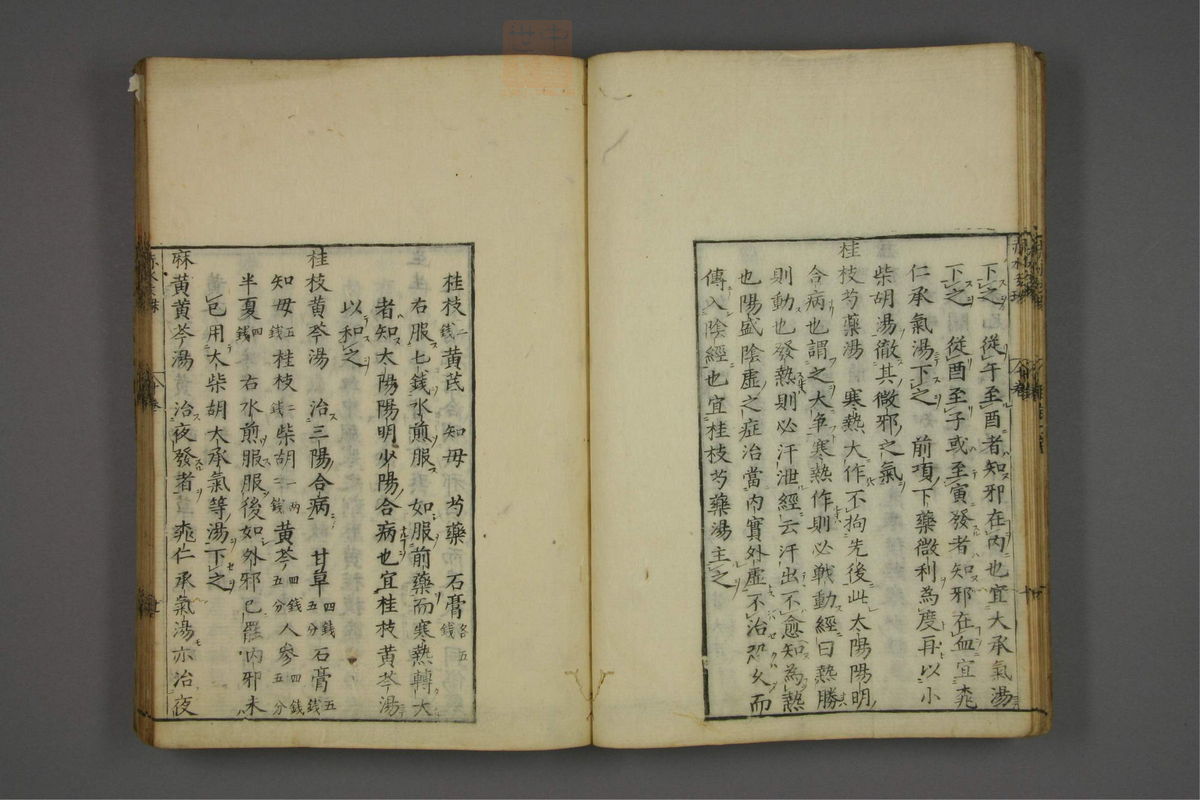 下之從午至酉者知邪在內也宜大承氣湯
下之從酉至子或至寅發者知邪在血宜桃
仁承氣湯下之　前項下藥微利為度再以小
柴胡湯徹其微邪之氣
桂枝芍藥湯　寒熱大作不拘先後此太陽陽明
合病也謂之大爭寒熱作則必戰動經曰熱勝
則動也發熱則必汗泄經云汗出不愈知為熱
也陽盛陰虛之症治當內實外虛不治恐久而
傳入陰經也宜桂枝芍藥湯主之
桂枝二錢黃芪　知母　芍藥　石膏各五錢
右服七錢水煎服　如服前藥而寒熱轉大
者知太陽陽明少陽合病也宜桂枝黃芩湯
以和之
桂枝黃芩湯　治三陽合病　甘草四錢五分石膏五錢
知母五錢桂枝二錢柴胡一兩二錢黃芩四錢五分人參四錢五分
半夏四錢　右水煎服服後如外邪已罷內邪未
已用大柴胡大承氣等湯下之
麻黃黃芩湯　治夜發者　桃仁承氣湯亦治夜